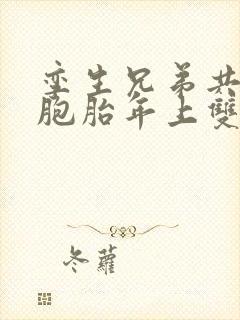 孪生兄弟共
胞胎年上雙
冬蘿